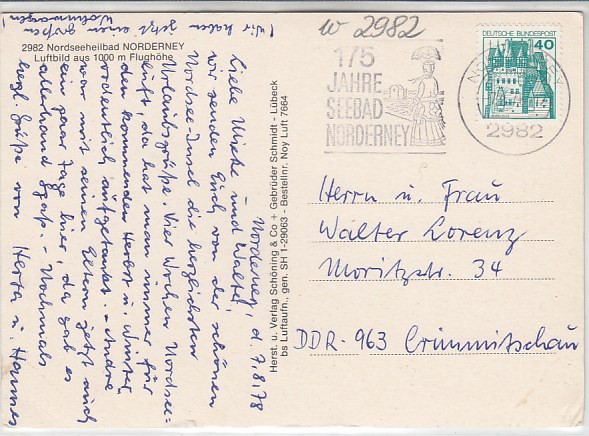 w 2982
2982 Nordseeheilbad NORDERNEY
Luftbild aus 1000 m Flughöhe
175
JAHRE
SEEBAD
NORDERNEY
DEUTSCHE BUNDESPOST
40
2982
Norderney, d. 7.8.78
Liebe und Walter!
wir senden Euch von der schönen
Nordsee-Insel die herzlichsten
Urlaubsgrüße. Vier Wochen Nordsee-
luft, da hat man immer für
den kommenden Herbst u. Winter
ordentlich aufgetankt. - Andre
war mit seinen Eltern jetzt auch
ein paar Tage hier, da gab es
allerhand Spaß. - Nochmals
herzl. Grüße von Herta u. Hannes
(Wir haben jetzt einen großen
Wohnwagen!)
Herst. u. Verlag Schöning & Co + Gebrüder Schmidt - Lübeck
bs Luftaufn., gen. SH 1-29063 - Bestellnr. Noy Luft 7664
Herrn u. Frau
Walter Lorenz
Moritzstr. 34
DDR-963 Crimmitschau